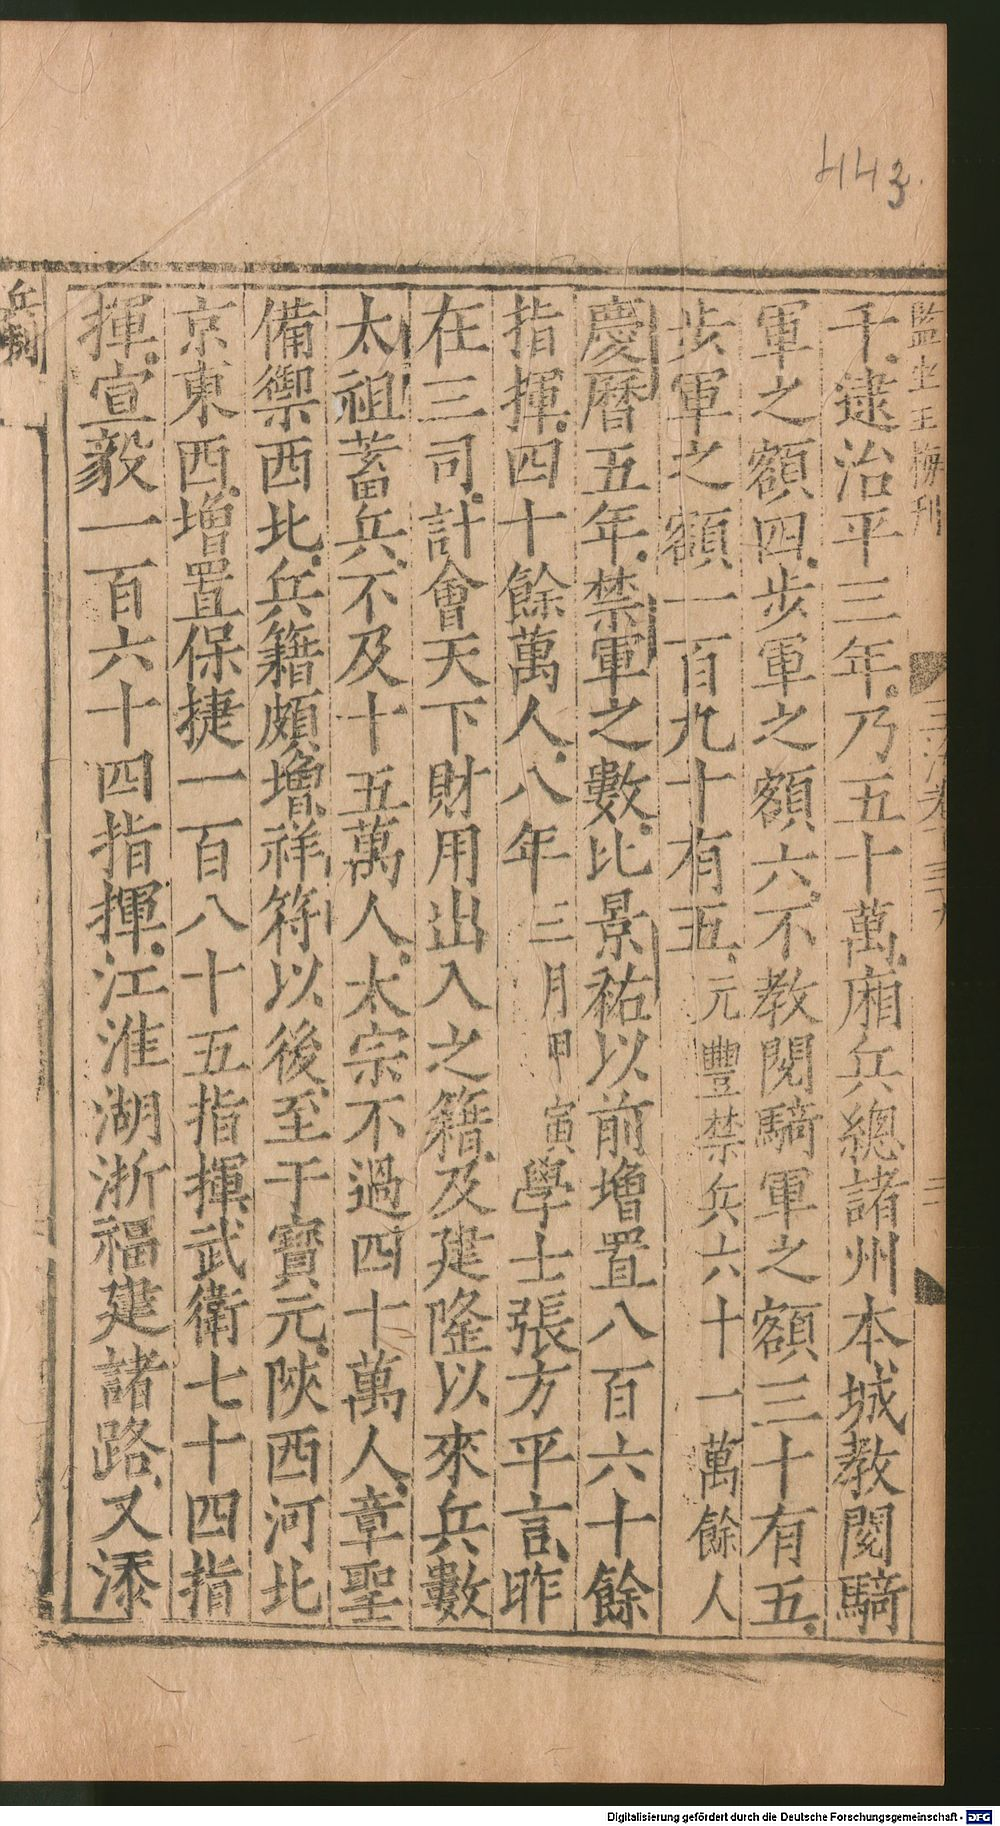 443
監生王梅刊
玉海卷百三十九
三
千逮治平三年乃五十萬廂兵總諸州本城教閱騎
軍之額四步軍之額六不教閱騎軍之額三十有五
步軍之額一百九十有五元豐禁兵六十一萬餘人
慶曆五年禁軍之數比景祐以前增置八百六十餘
指揮四十餘萬人八年三月甲寅學士張方平言昨
在三司計會天下財用出入之籍及建隆以來兵數
太祖蓄兵不及十五萬人太宗不過四十萬人章聖
備禦西北兵籍頗增祥符以後至于寶元陝西河北
京東西增置保捷一百八十五指揮武衛七十四指
揮宣毅一百六十四指揮江淮湖浙福建諸路又添
兵制
Digitalisierung gefördert durch die Deutsche Forschungsgemeinschaft - DFG